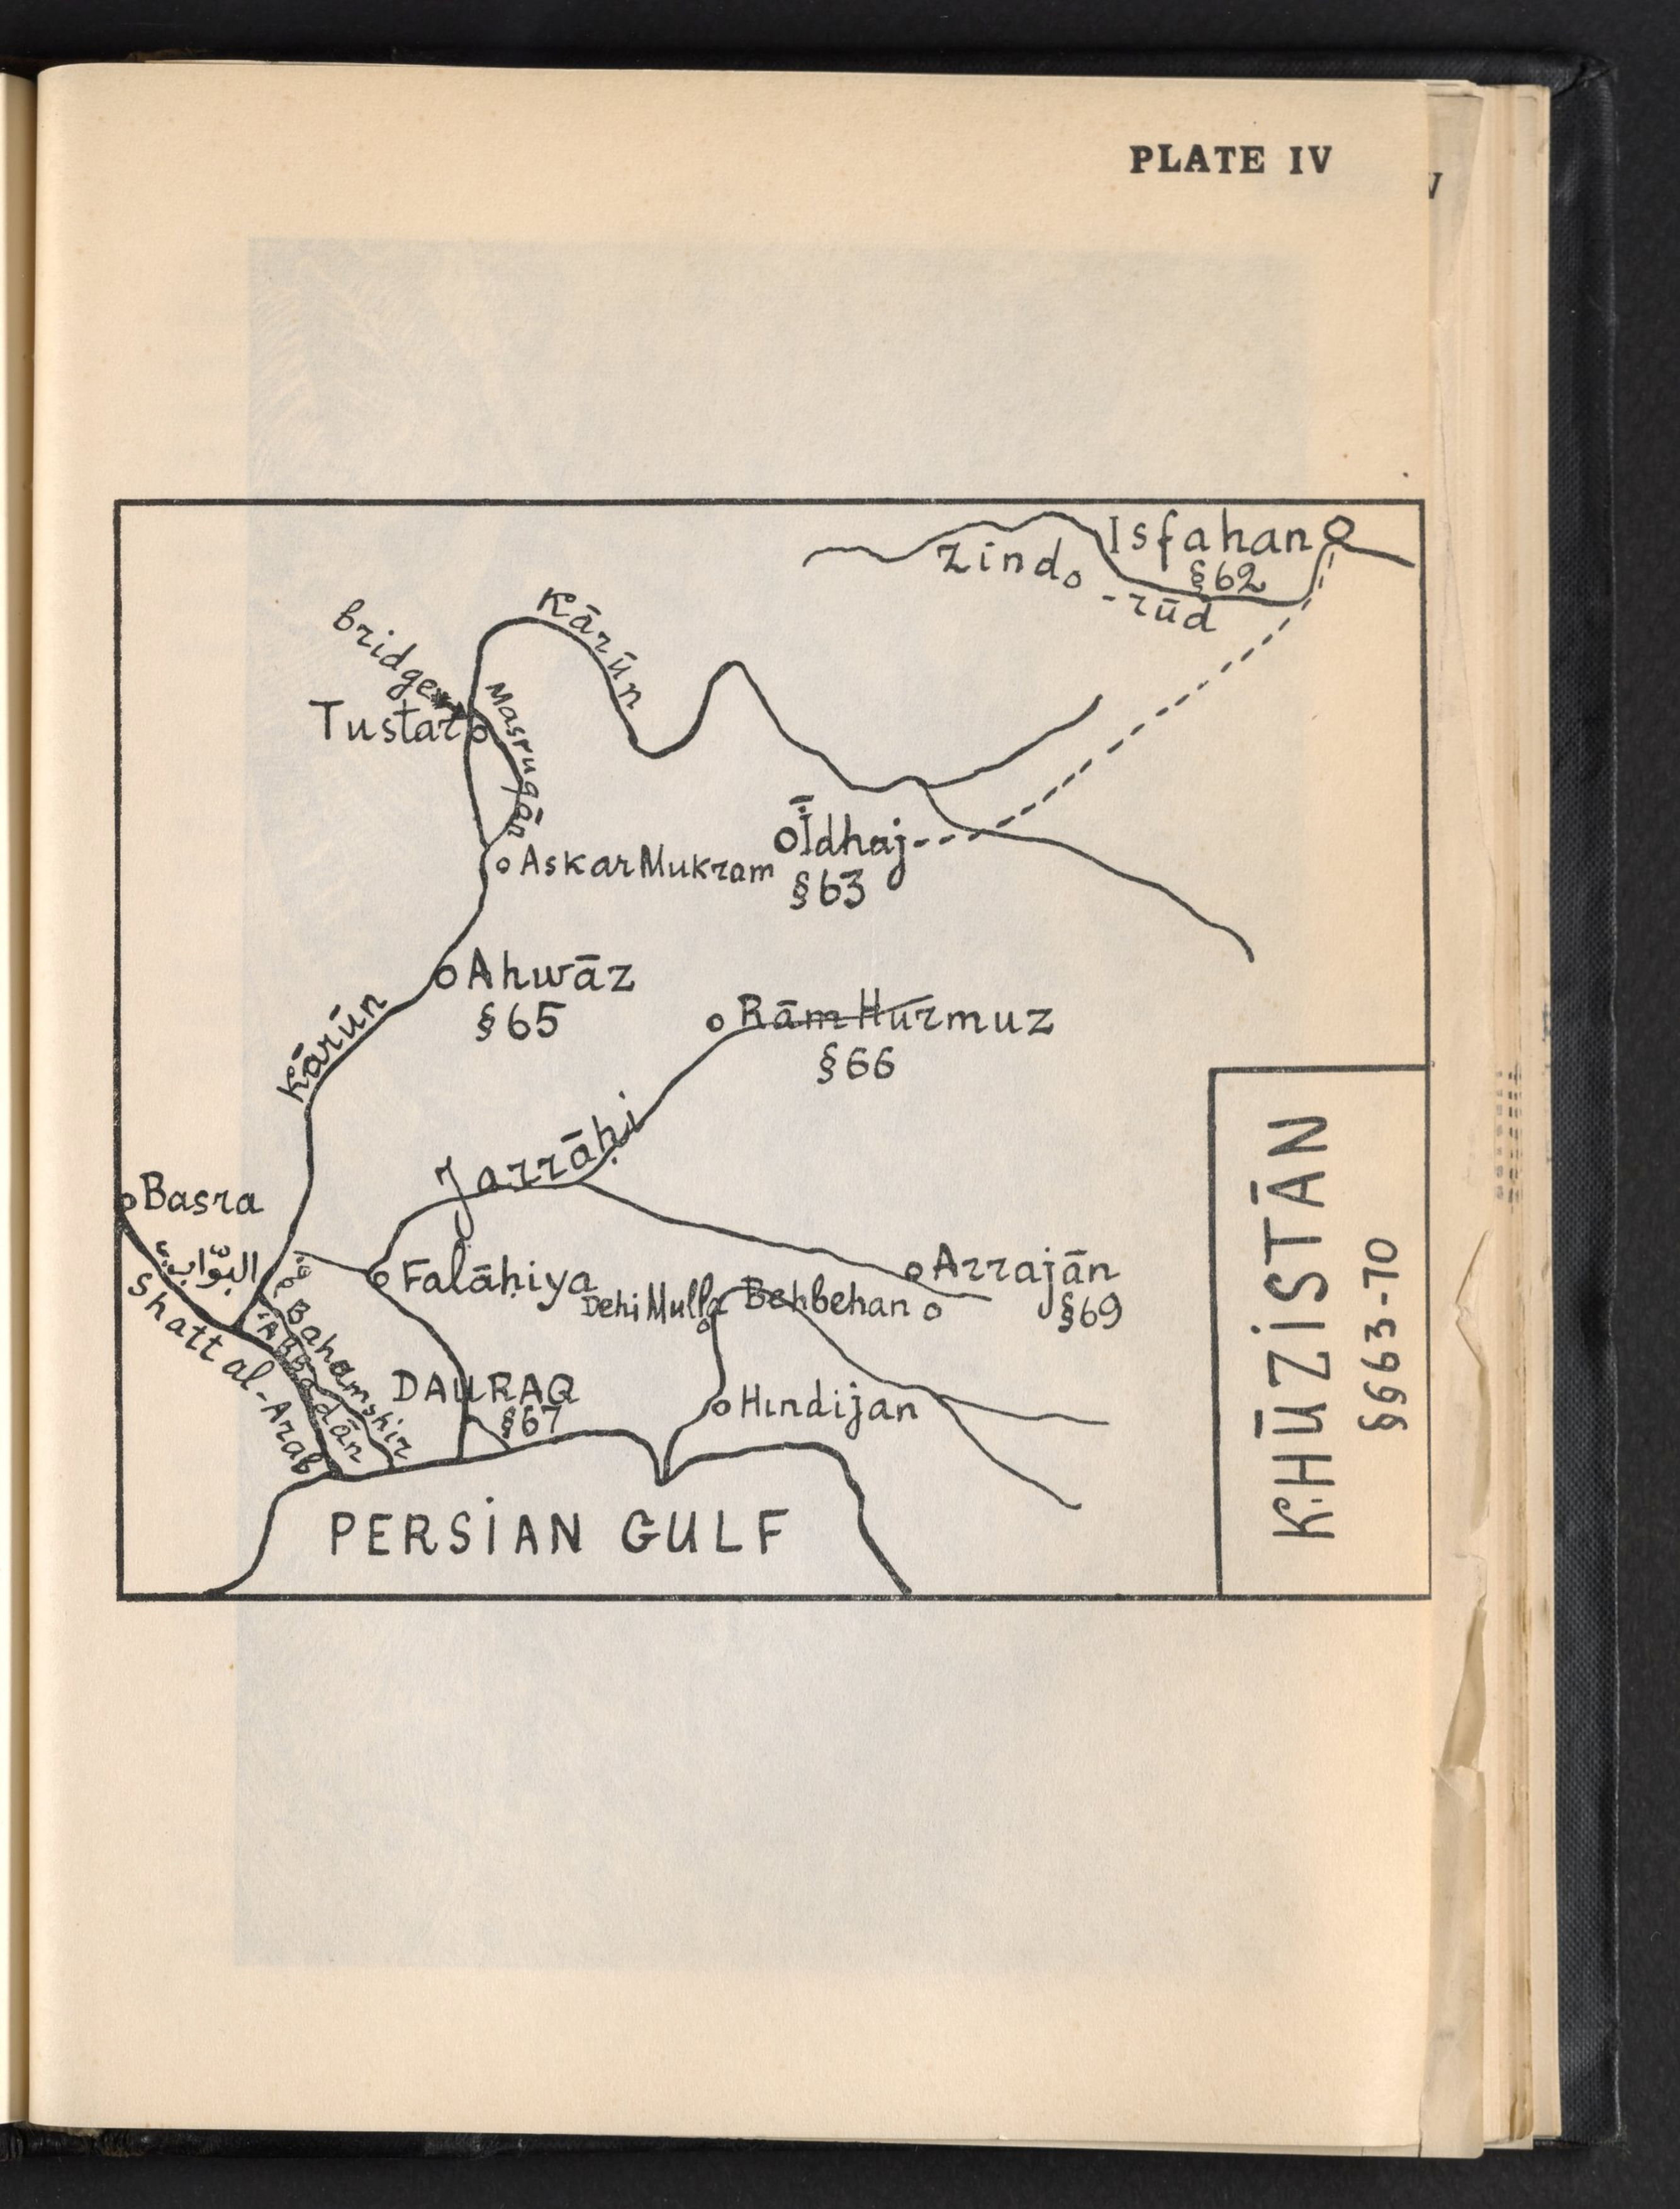 PLATE IV
V
Isfahan
§62
Zindo
-rūd
Kārūn
bridge
Masruqān
Tustar
Īdhaj
§63
Askar Mukram
Ahwāz
§65
Rām Hurmuz
§66
Kārūn
Jarrāḥi
Basra
البوّاب
Shatt al-Arab
Falāḥiya
Arrajān
§69
Dehi Mulla
Behbehan
Bahamshir
'Abbadān
DAURAQ
§67
Hindijan
PERSIAN GULF
KHŪZISTĀN
§§63-70